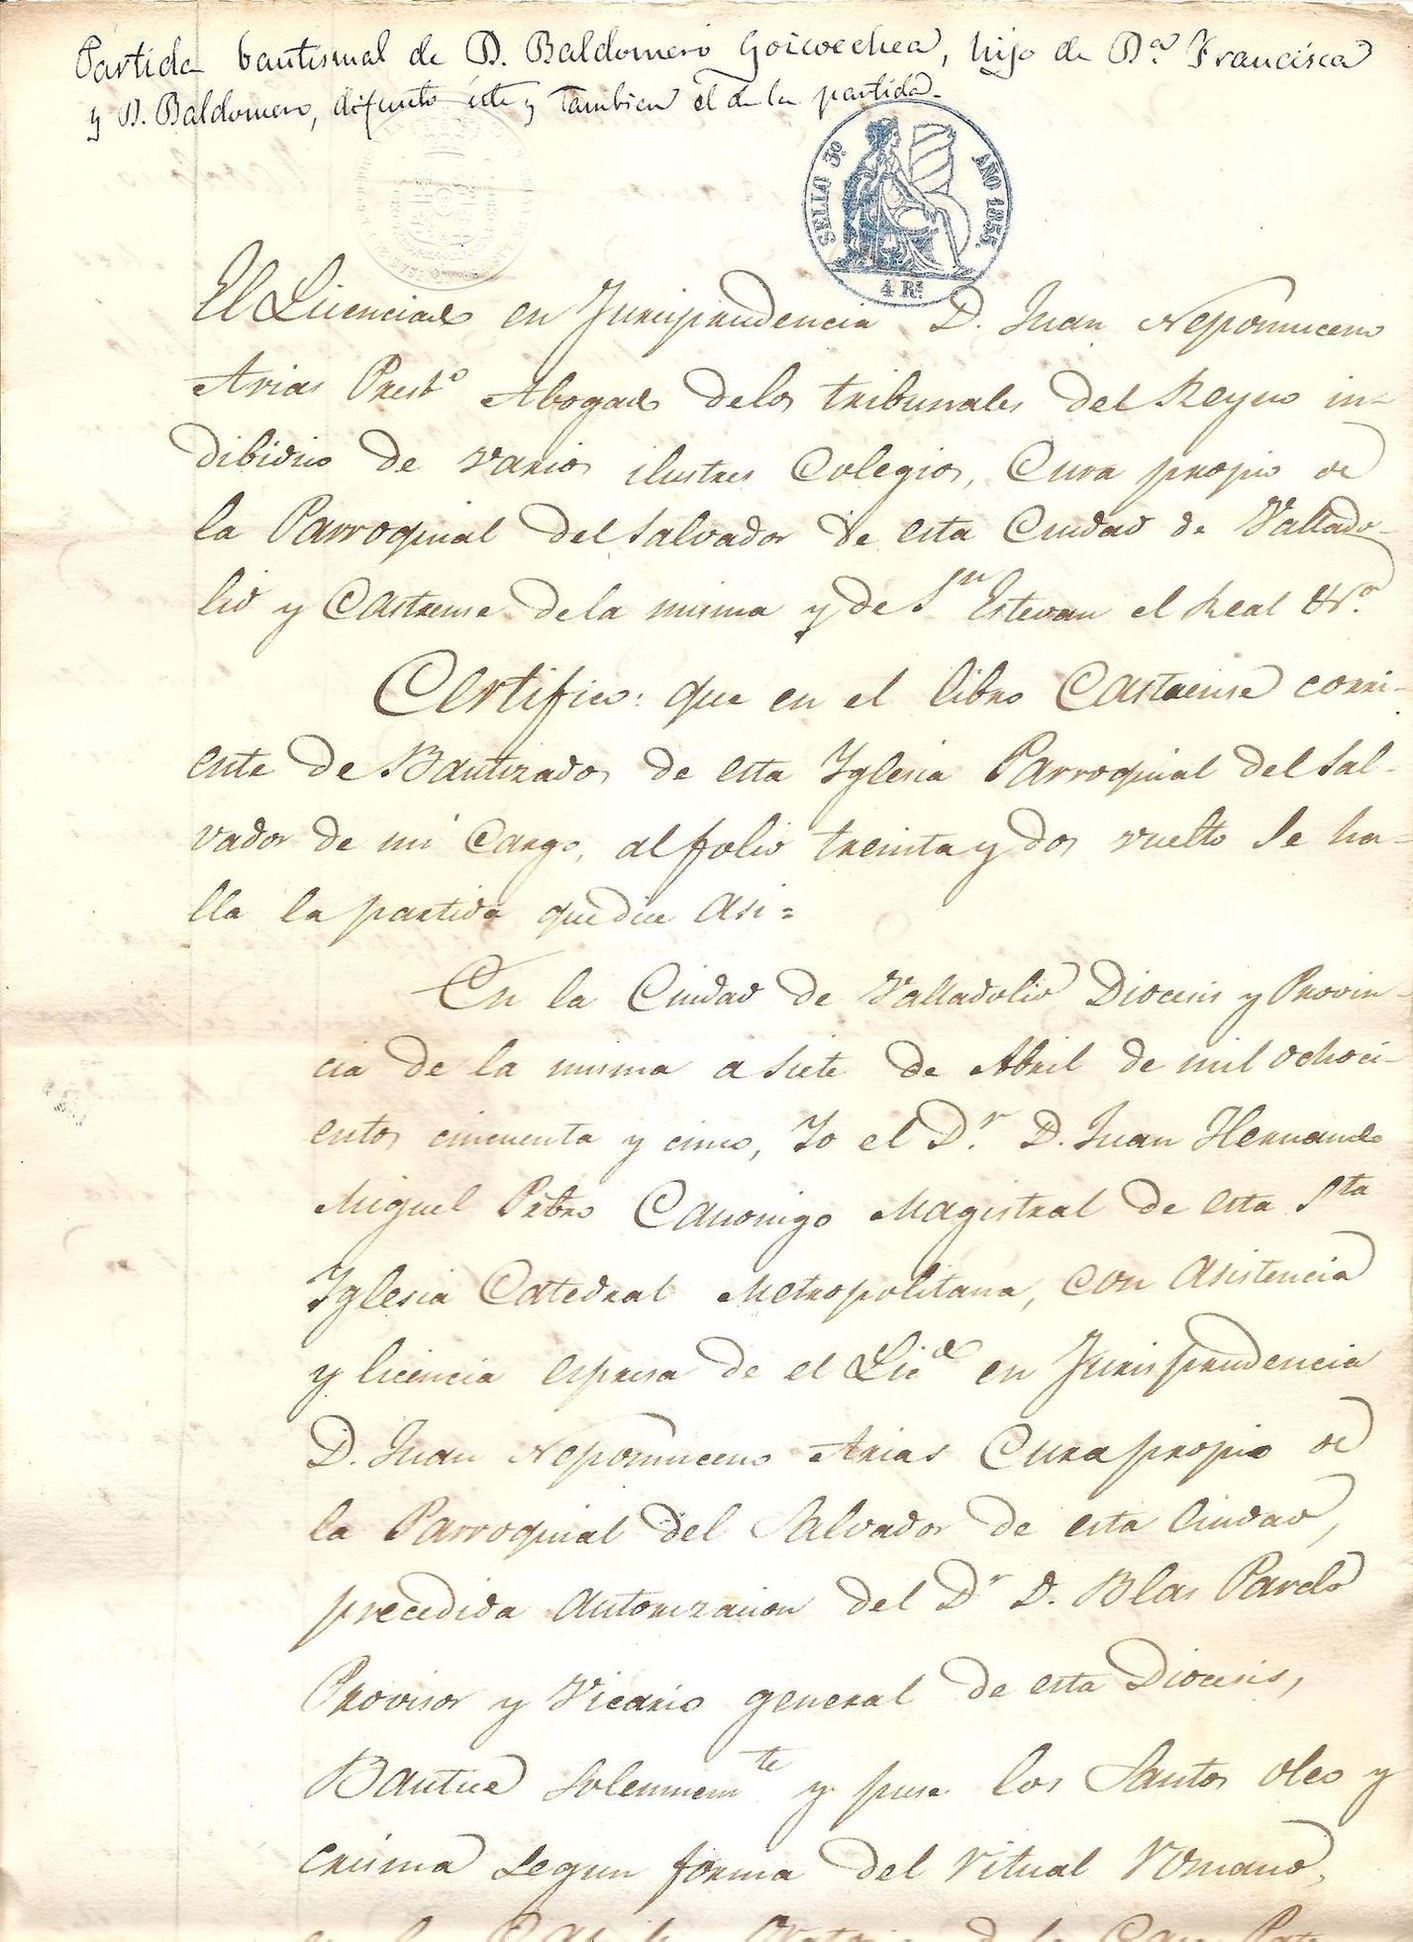 Partida bautismal de D. Baldomero Goicoechea, hijo de D.ª Francisca
y D. Baldomero, difunto éste y tambien el de la partida.
SELLO 3º AÑO 1855.
4 Rs
El Licenciado en Jurisprudencia D. Juan Nepomuceno
Arias Presbº Abogado delos tribunales del Reyno in-
dibiduo de varios ilustres Colegios, Cura propio de
la Parroquial del Salvador de esta Ciudad de Vallado-
lid y Castrense dela misma y de Sn Estevan el Real &ª
Certifico: que en el libro Castrense corri-
ente de Bautizados de esta Iglesia Parroquial del Sal-
vador de mi cargo, al folio treinta y dos vuelto se ha-
lla la partida que dice asi=
En la Ciudad de Valladolid Diocesis y Provin-
cia de la misma a siete de Abril de mil ochoci-
entos cincuenta y cinco, Yo el D.r D. Juan Hernando
Miguel Pbro Canonigo Magistral de esta Sta
Iglesia Catedral Metropolitana, con asistencia
y licencia espresa de el Licdo en Jurisprudencia
D. Juan Nepomuceno Arias Cura propio de
la Parroquial del Salvador de esta Ciudad,
precedida autorizacion del Dr D. Blas Pardo
Provisor y Vicario general de esta Diocesis,
Bautice solemnemte y puse los Santos oleo y
crisma segun forma del ritual romano,